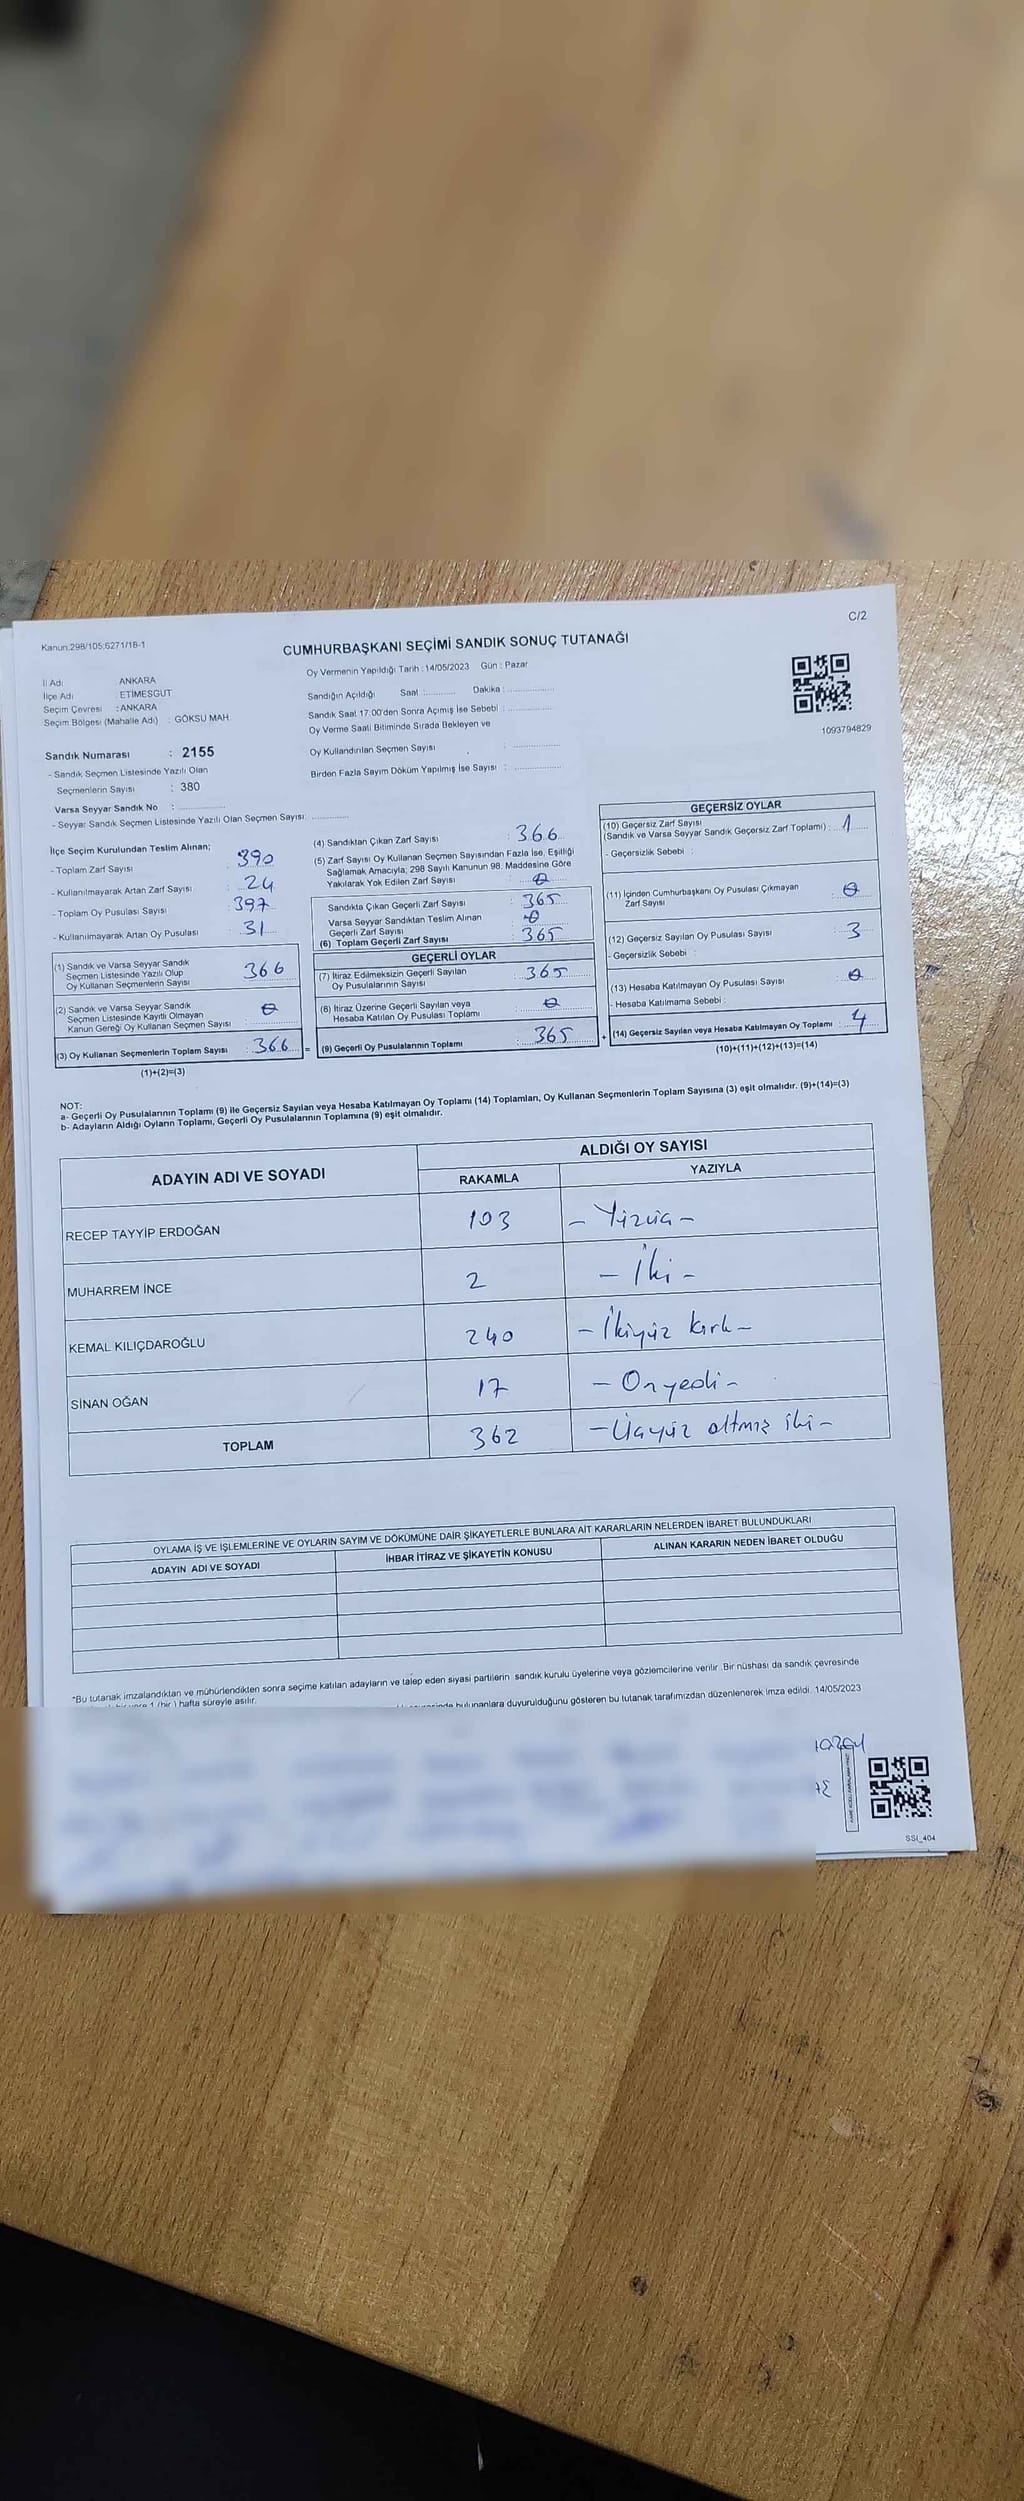 C/2
Kanun:298/105;6271/18-1
CUMHURBAŞKANI SEÇİMİ SANDIK SONUÇ TUTANAĞI
İl Adı : ANKARA
İlçe Adı : ETİMESGUT
Seçim Çevresi : ANKARA
Seçim Bölgesi (Mahalle Adı) : GÖKSU MAH.
Oy Vermenin Yapıldığı Tarih : 14/05/2023 Gün : Pazar
Sandığın Açıldığı Saat :........... Dakika :................
Sandık Saat 17:00'den Sonra Açımış İse Sebebi :................
Oy Verme Saati Bitiminde Sırada Bekleyen ve
Oy Kullandırılan Seçmen Sayısı :................
Birden Fazla Sayım Döküm Yapılmış İse Sayısı :................
1093794829
Sandık Numarası : 2155
- Sandık Seçmen Listesinde Yazılı Olan
Seçmenlerin Sayısı : 380
Varsa Seyyar Sandık No :................
- Seyyar Sandık Seçmen Listesinde Yazılı Olan Seçmen Sayısı:............
İlçe Seçim Kurulundan Teslim Alınan;
- Toplam Zarf Sayısı : 390
- Kullanılmayarak Artan Zarf Sayısı : 24
- Toplam Oy Pusulası Sayısı : 397
- Kullanılmayarak Artan Oy Pusulası : 31
(1) Sandık ve Varsa Seyyar Sandık
Seçmen Listesinde Yazılı Olup
Oy Kullanan Seçmenlerin Sayısı : 366
(2) Sandık ve Varsa Seyyar Sandık
Seçmen Listesinde Kayıtlı Olmayan
Kanun Gereği Oy Kullanan Seçmen Sayısı : 0
(3) Oy Kullanan Seçmenlerin Toplam Sayısı : 366
(1)+(2)=(3)
(4) Sandıktan Çıkan Zarf Sayısı : 366
(5) Zarf Sayısı Oy Kullanan Seçmen Sayısından Fazla İse, Eşitliği
Sağlamak Amacıyla; 298 Sayılı Kanunun 98. Maddesine Göre
Yakılarak Yok Edilen Zarf Sayısı : 0
Sandıkta Çıkan Geçerli Zarf Sayısı : 365
Varsa Seyyar Sandıktan Teslim Alınan
Geçerli Zarf Sayısı : 0
(6) Toplam Geçerli Zarf Sayısı : 365
GEÇERLİ OYLAR
(7) İtiraz Edilmeksizin Geçerli Sayılan
Oy Pusulalarının Sayısı : 365
(8) İtiraz Üzerine Geçerli Sayılan veya
Hesaba Katılan Oy Pusulası Toplamı : 0
= (9) Geçerli Oy Pusulalarının Toplamı : 365
GEÇERSİZ OYLAR
(10) Geçersiz Zarf Sayısı
(Sandık ve Varsa Seyyar Sandık Geçersiz Zarf Toplamı) : 1
- Geçersizlik Sebebi :
(11) İçinden Cumhurbaşkanı Oy Pusulası Çıkmayan
Zarf Sayısı : 0
(12) Geçersiz Sayılan Oy Pusulası Sayısı : 3
- Geçersizlik Sebebi :
(13) Hesaba Katılmayan Oy Pusulası Sayısı : 0
- Hesaba Katılmama Sebebi :
+ (14) Geçersiz Sayılan veya Hesaba Katılmayan Oy Toplamı : 4
(10)+(11)+(12)+(13)=(14)
NOT:
a- Geçerli Oy Pusulalarının Toplamı (9) ile Geçersiz Sayılan veya Hesaba Katılmayan Oy Toplamı (14) Toplamları, Oy Kullanan Seçmenlerin Toplam Sayısına (3) eşit olmalıdır. (9)+(14)=(3)
b- Adayların Aldığı Oyların Toplamı, Geçerli Oy Pusulalarının Toplamına (9) eşit olmalıdır.
ADAYIN ADI VE SOYADI ALDIĞI OY SAYISI
RAKAMLA YAZIYLA
RECEP TAYYİP ERDOĞAN 103 - Yüzüç -
MUHARREM İNCE 2 - İki -
KEMAL KILIÇDAROĞLU 240 - İkiyüz kırk -
SİNAN OĞAN 17 - Onyedi -
TOPLAM 362 - Üçyüz altmış iki -
OYLAMA İŞ VE İŞLEMLERİNE VE OYLARIN SAYIM VE DÖKÜMÜNE DAİR ŞİKAYETLERLE BUNLARA AİT KARARLARIN NELERDEN İBARET BULUNDUKLARI
ADAYIN ADI VE SOYADI İHBAR İTİRAZ VE ŞİKAYETİN KONUSU ALINAN KARARIN NEDEN İBARET OLDUĞU
*Bu tutanak imzalandıktan ve mühürlendikten sonra seçime katılan adayların ve talep eden siyasi partilerin sandık kurulu üyelerine veya gözlemcilerine verilir. Bir nüshası da sandık çevresinde
1 (bir) hafta süreyle asılır.
bulunanlara duyurulduğunu gösteren bu tutanak tarafımızdan düzenlenerek imza edildi. 14/05/2023
SSI_404